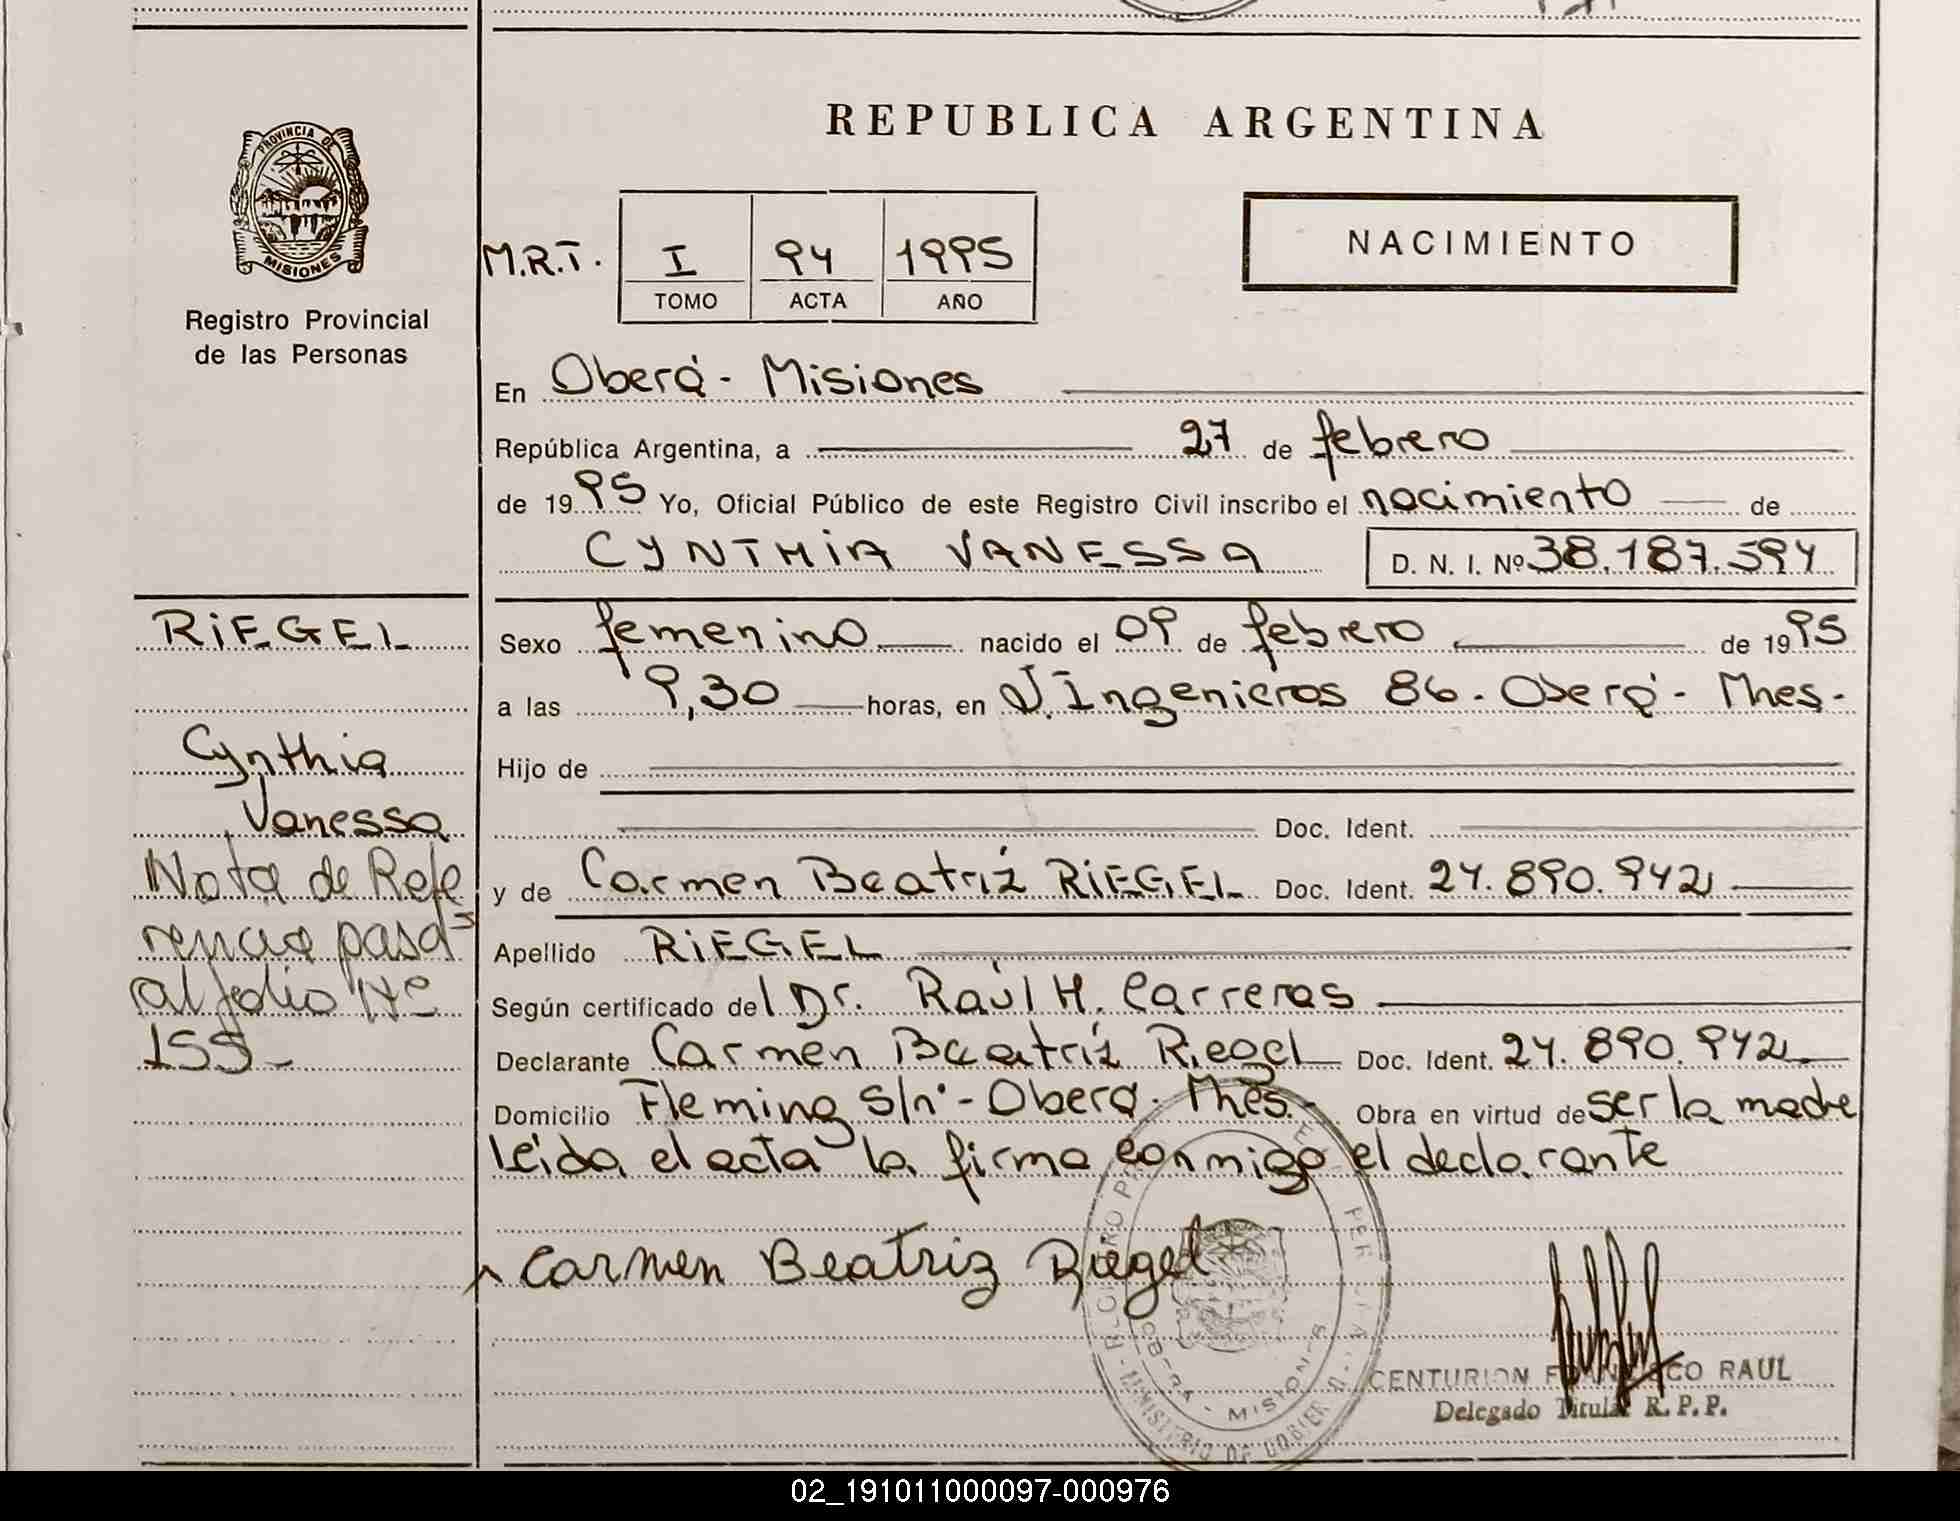 REPUBLICA ARGENTINA
PROVINCIA DE
MISIONES
Registro Provincial
de las Personas
M.R.T. I 94 1995
TOMO ACTA AÑO
NACIMIENTO
En Oberá - Misiones
República Argentina, a 27 de febrero
de 1995 Yo, Oficial Público de este Registro Civil inscribo el nacimiento de
CYNTHIA VANESSA D. N. I. Nº 38.187.594
RIEGEL
Cynthia
Vanessa
Nota de Refe
rencia pasa=
al folio Nº
155-
Sexo femenino nacido el 09 de febrero de 1995
a las 9,30 horas, en J. Ingenieros 86 - Oberá - Mnes -
Hijo de
Doc. Ident.
y de Carmen Beatríz RIEGEL Doc. Ident. 24.890.942
Apellido RIEGEL
Según certificado del Dr. Raúl H. Carreras
Declarante Carmen Beatríz Riegel Doc. Ident. 24.890.942
Domicilio Fleming s/nº - Oberá - Mnes. - Obra en virtud de ser la madre
leida el acta la firma conmigo el declarante
Carmen Beatriz Riegel
OBERA - MISIONES
MINISTERIO DE GOBIERNO
CENTURION FRANCISCO RAUL
Delegado Titular R. P. P.
02_191011000097-000976